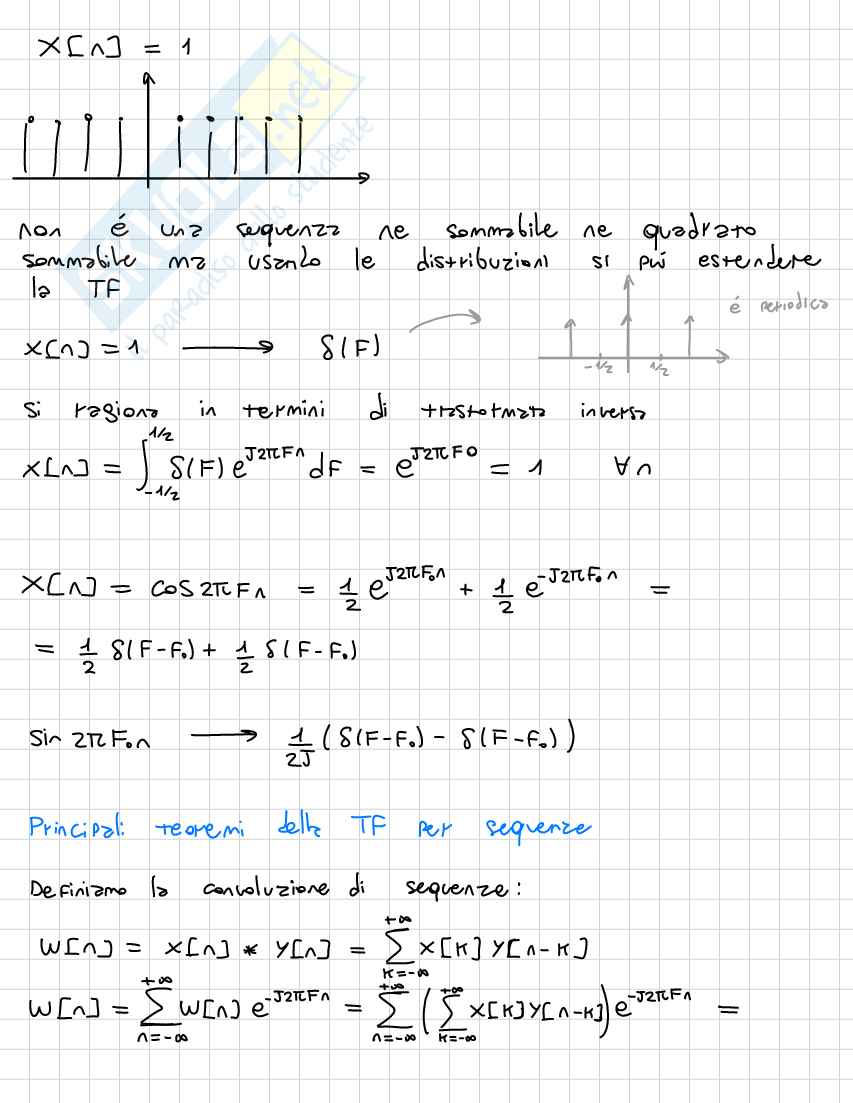 X[n] = 1
non é una sequenza ne sommabile ne quadrato
sommabile ma usando le distribuzioni si puó estendere
la TF
é periodica
x[n] = 1 ⟶ δ(F)
-1/2 1/2
Si ragiona in termini di trasformata inversa
x[n] = ∫_{-1/2}^{1/2} δ(F) e^{J2πFn} dF = e^{J2πF0} = 1 ∀n
X[n] = cos 2πFn = 1/2 e^{J2πF₀n} + 1/2 e^{-J2πF₀n} =
= 1/2 δ(F-F₀) + 1/2 δ(F-F₀)
Sin 2πF₀n ⟶ 1/2J (δ(F-F₀) - δ(F-F₀))
Principali teoremi della TF per sequenze
Definiamo la convoluzione di sequenze:
W[n] = x[n] * y[n] = Σ_{k=-∞}^{+∞} x[k] y[n-k]
W[n] = Σ_{n=-∞}^{+∞} W[n] e^{-J2πFn} = Σ_{n=-∞}^{+∞} (Σ_{k=-∞}^{+∞} x[k] y[n-k]) e^{-J2πFn} =
SKUOLA.net
il paradiso dello studente